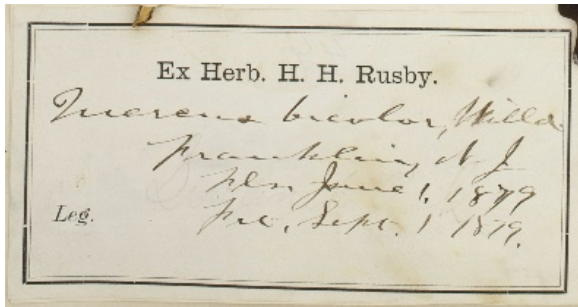 Ex Herb. H. H. Rusby.
Quercus bicolor, Willd
Franklin, N. J.
Fls. June 1, 1879
Frt. Sept. 1 1879.
Leg.